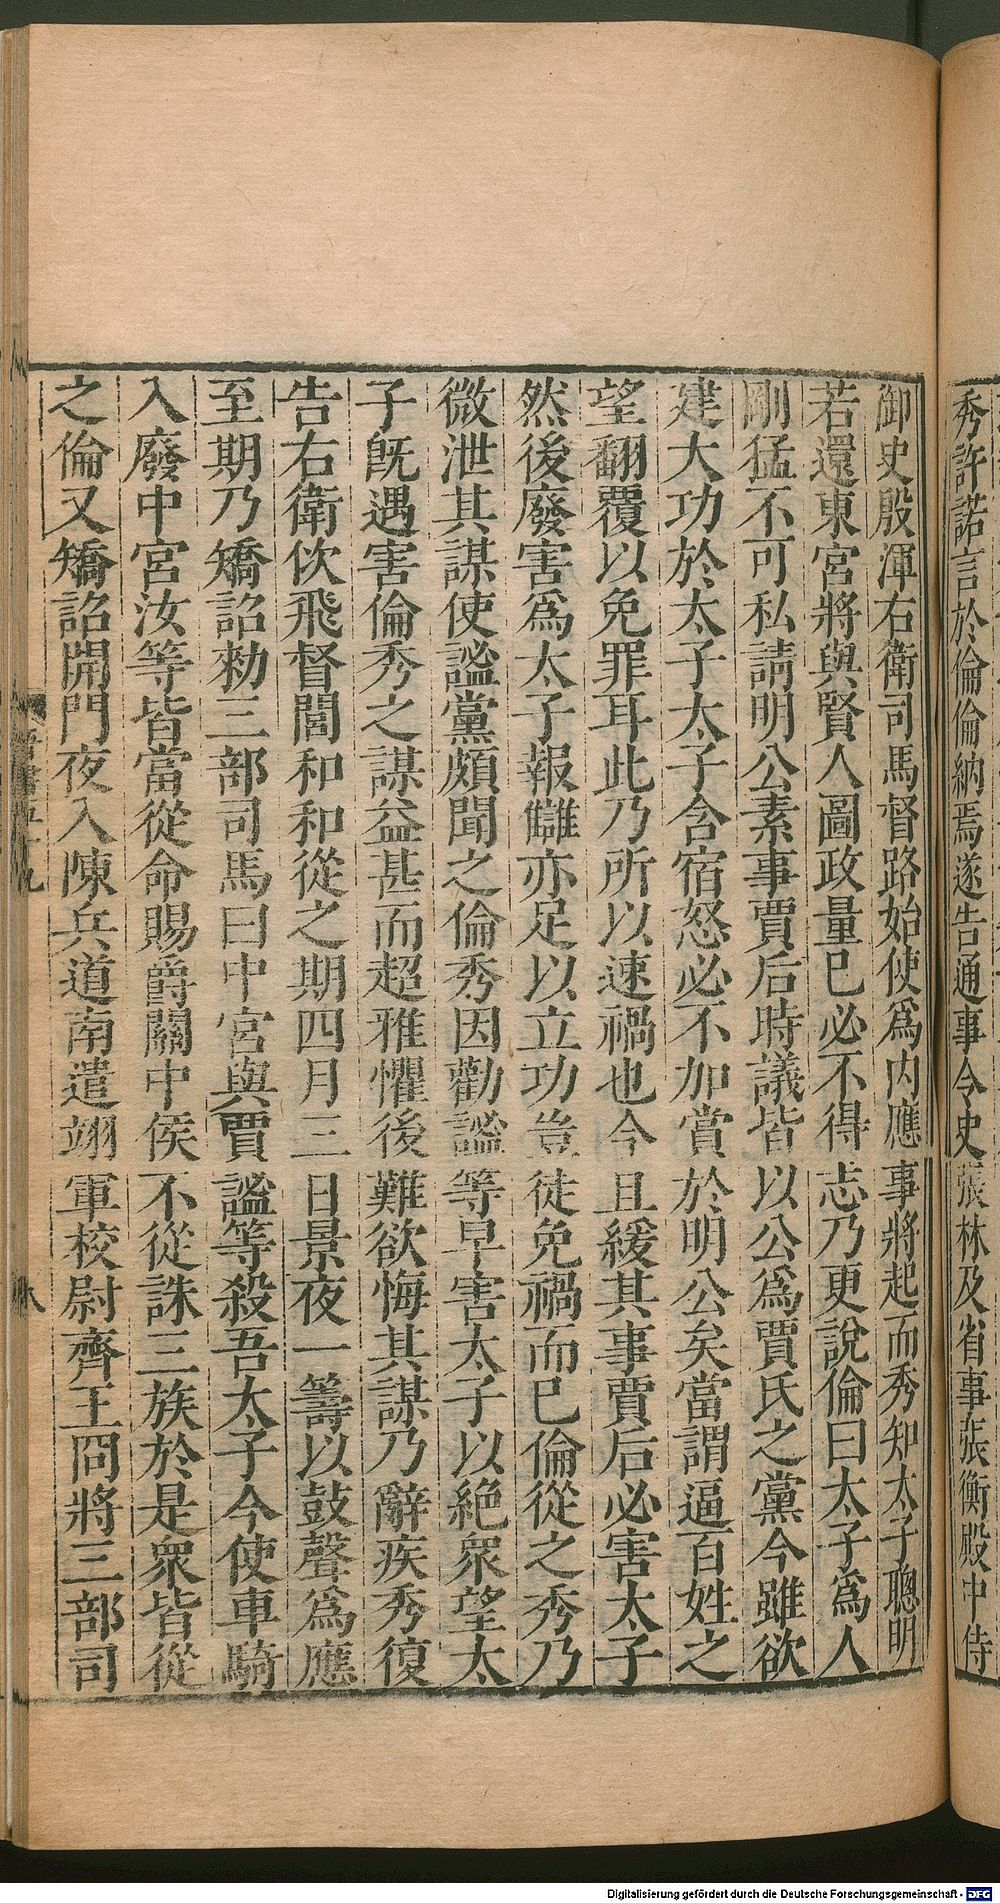 秀許諾言於倫倫納焉遂告通事令史張林及省事張衡殿中侍
御史殷渾右衛司馬督路始使爲內應事將起而秀知太子聰明
若還東宮將與賢人圖政量已必不得志乃更說倫曰太子爲人
剛猛不可私請明公素事賈后時議皆以公爲賈氏之黨今雖欲
建大功於太子太子含宿怒必不加賞於明公矣當謂逼百姓之
望翻覆以免罪耳此乃所以速禍也今且緩其事賈后必害太子
然後廢害爲太子報讎亦足以立功豈徒免禍而已倫從之秀乃
微泄其謀使謐黨頗聞之倫秀因勸謐等早害太子以絕衆望太
子旣遇害倫秀之謀益甚而超雅懼後難欲悔其謀乃辭疾秀復
告右衛佽飛督閭和和從之期四月三日景夜一籌以鼓聲爲應
至期乃矯詔勑三部司馬曰中宮與賈謐等殺吾太子今使車騎
入廢中宮汝等皆當從命賜爵關中侯不從誅三族於是衆皆從
之倫又矯詔開門夜入陳兵道南遣翊軍校尉齊王冏將三部司
Digitalisierung gefördert durch die Deutsche Forschungsgemeinschaft - DFG